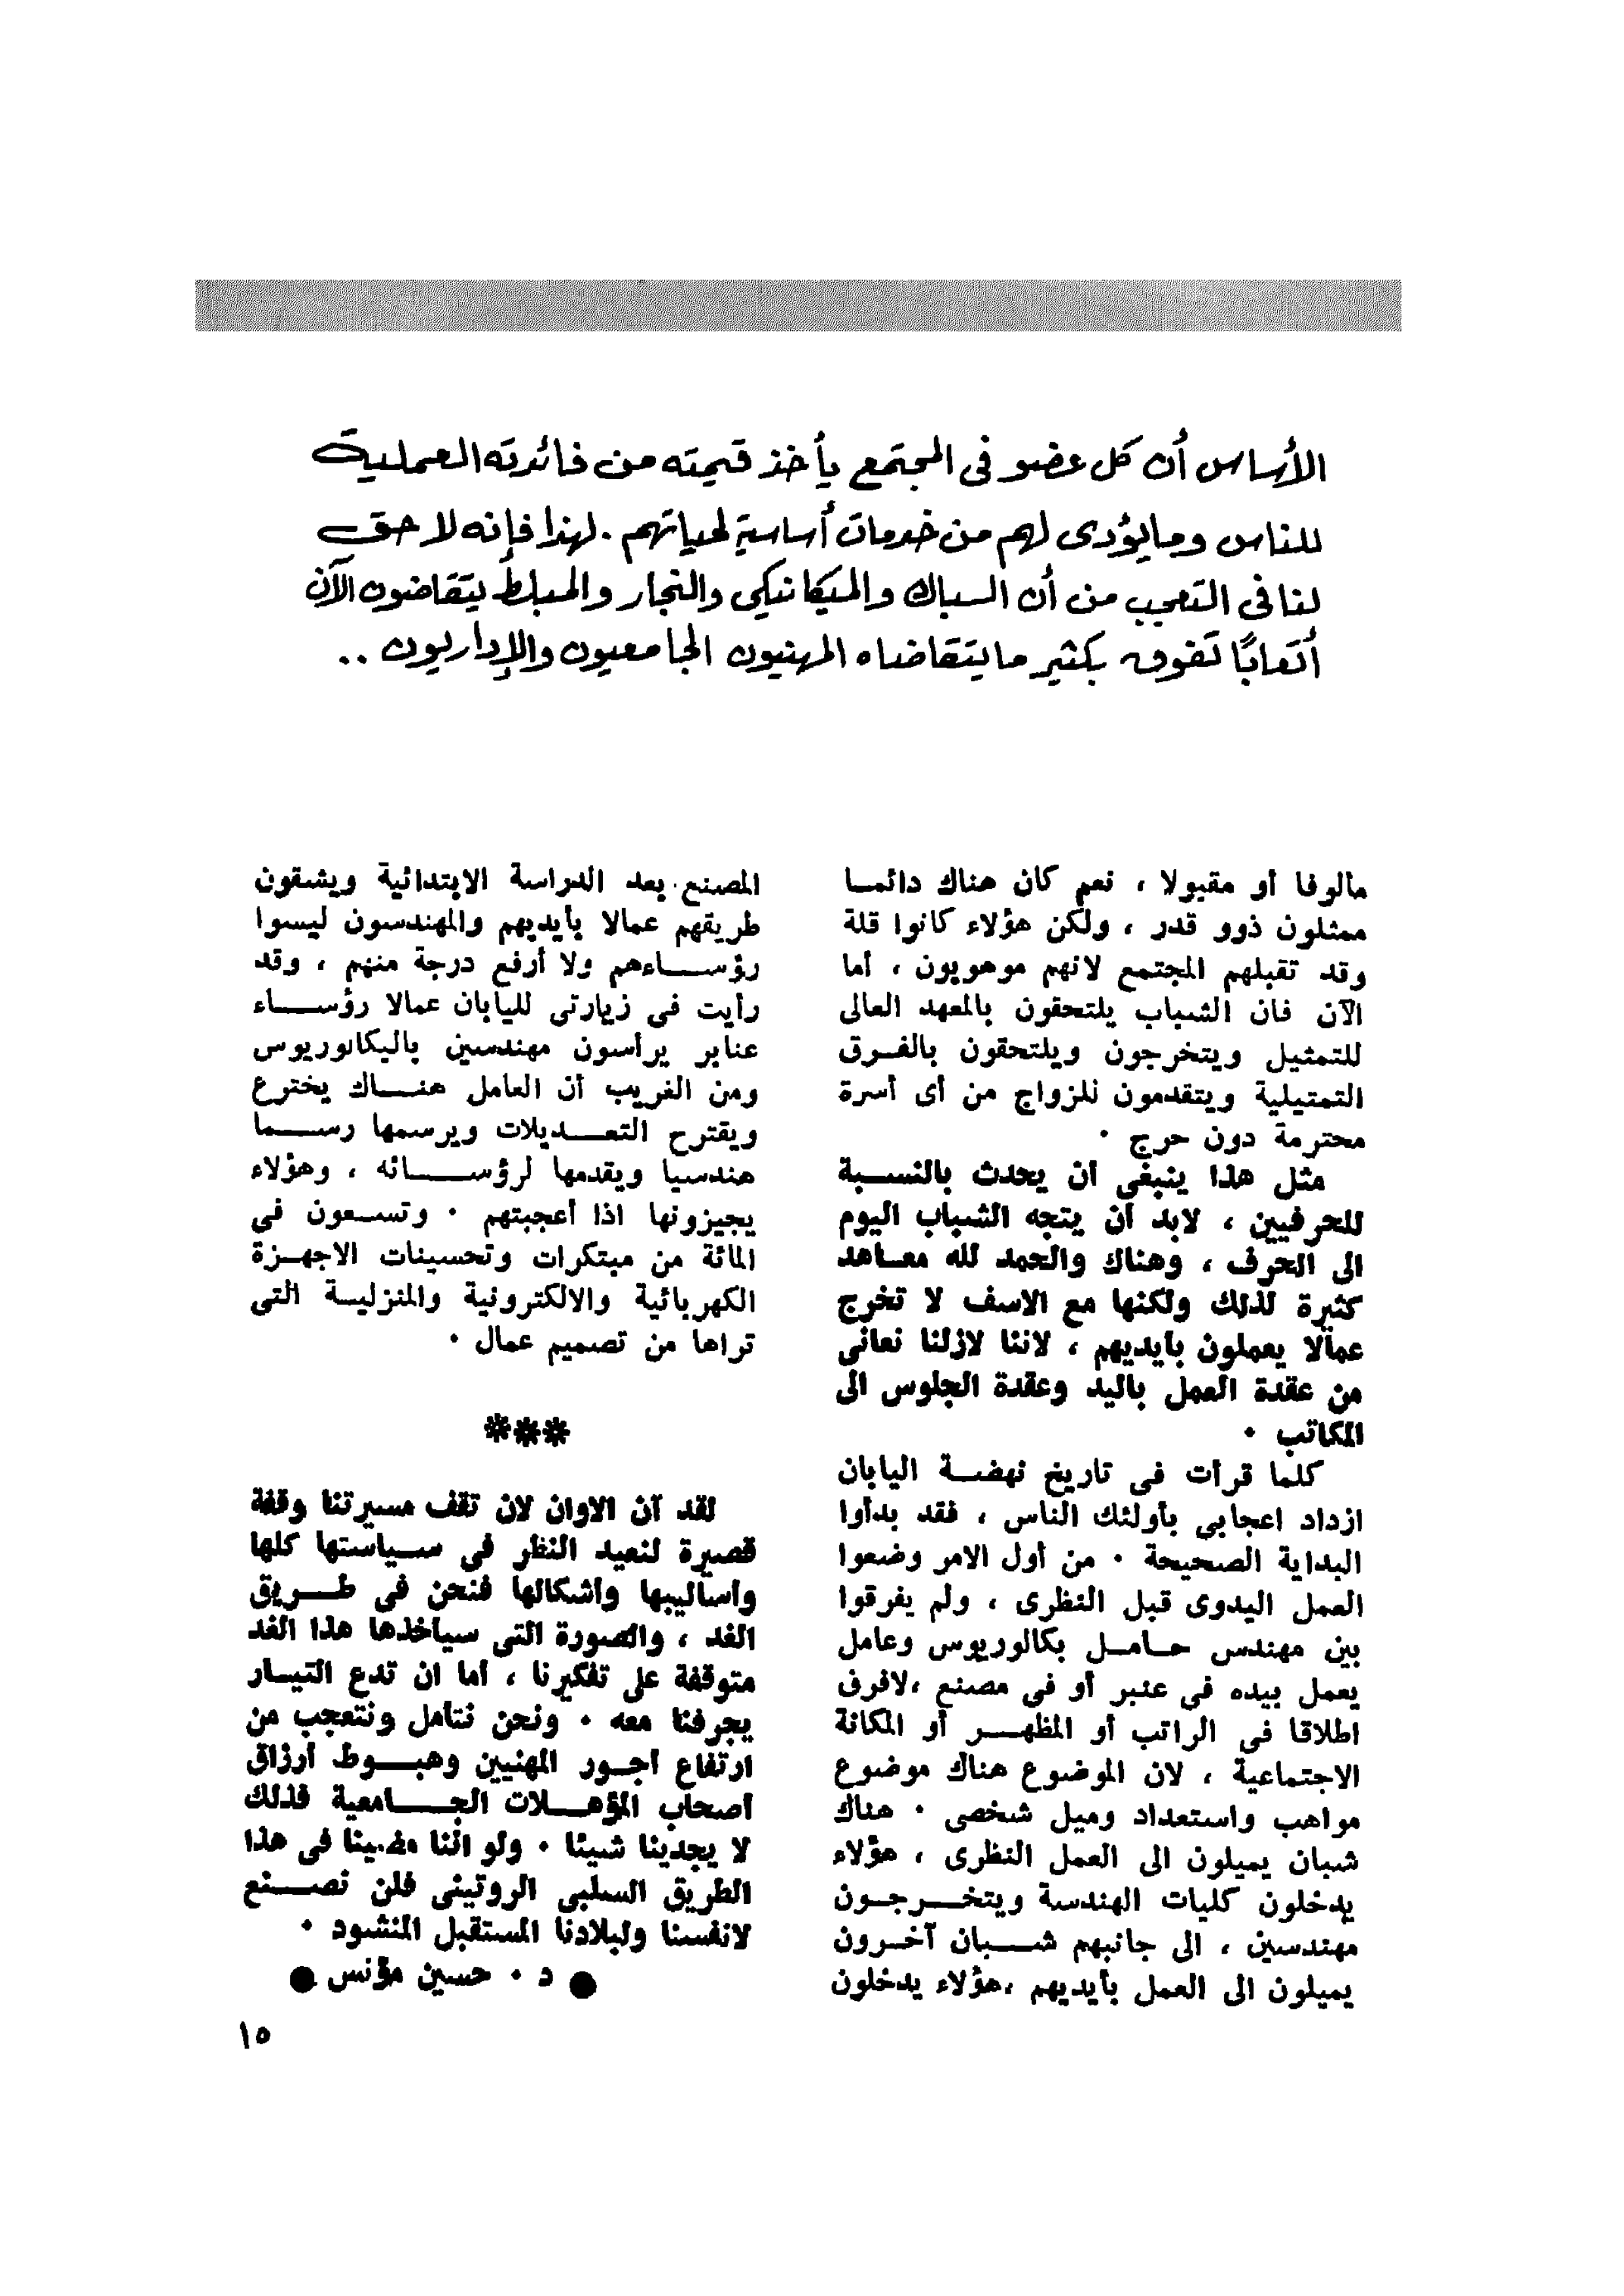 الأساس أن كل عضو فى المجتمع يأخذ قيمته من فائدته العملية
للناس وما يؤدى لهم من خدمات أساسية لحياتهم . لهذا فإنه لا حق
لنا فى التعجب من أن السباك والميكانيكى والنجار والمبلط يتقاضون الآن
أتعابًا تفوق بكثير ما يتقاضاه المهنيون الجامعيون والإداريون ..
مألوفا أو مقبولا ، نعم كان هناك دائما
ممثلون ذوو قدر ، ولكن هؤلاء كانوا قلة
وقد تقبلهم المجتمع لانهم موهوبون ، أما
الآن فان الشباب يلتحقون بالمعهد العالى
للتمثيل ويتخرجون ويلتحقون بالفرق
التمثيلية ويتقدمون للزواج من أى أسرة
محترمة دون حرج ٠
مثل هذا ينبغى أن يحدث بالنسبة
للحرفيين ، لابد أن يتجه الشباب اليوم
الى الحرف ، وهناك والحمد لله معاهد
كثيرة لذلك ولكنها مع الاسف لا تخرج
عمالا يعملون بأيديهم ، لاننا لازلنا نعانى
من عقدة العمل باليد وعقدة الجلوس الى
المكاتب ٠
كلما قرأت فى تاريخ نهضة اليابان
ازداد اعجابى بأولئك الناس ، فقد بدأوا
البداية الصحيحة ٠ من أول الامر وضعوا
العمل اليدوى قبل النظرى ، ولم يفرقوا
بين مهندس حامل بكالوريوس وعامل
يعمل بيده فى عنبر أو فى مصنع ،لافرق
اطلاقا فى الراتب أو المظهر أو المكانة
الاجتماعية ، لان الموضوع هناك موضوع
مواهب واستعداد وميل شخصى ٠ هناك
شبان يميلون الى العمل النظرى ، هؤلاء
يدخلون كليات الهندسة ويتخرجون
مهندسين ، الى جانبهم شبان آخرون
يميلون الى العمل بأيديهم ،هؤلاء يدخلون
المصنع بعد الدراسة الابتدائية ويشقون
طريقهم عمالا بأيديهم والمهندسون ليسوا
رؤساءهم ولا أرفع درجة منهم ، وقد
رأيت فى زيارتى لليابان عمالا رؤساء
عنابر يرأسون مهندسين بالبكالوريوس
ومن الغريب أن العامل هناك يخترع
ويقترح التعديلات ويرسمها رسما
هندسيا ويقدمها لرؤسائه ، وهؤلاء
يجيزونها اذا أعجبتهم ٠ وتسعون فى
المائة من مبتكرات وتحسينات الاجهزة
الكهربائية والالكترونية والمنزلية التى
تراها من تصميم عمال ٠
***
لقد آن الاوان لان تقف مسيرتنا وقفة
قصيرة لنعيد النظر فى سياستها كلها
وأساليبها وأشكالها فنحن فى طريق
الغد ، والصورة التى سيأخذها هذا الغد
متوقفة على تفكيرنا ، أما ان تدع التيار
يجرفنا معه ٠ ونحن نتأمل ونتعجب من
ارتفاع أجور المهنيين وهبوط أرزاق
أصحاب المؤهلات الجامعية فذلك
لا يجدينا شيئا ٠ ولو اننا مضينا فى هذا
الطريق السلبى الروتينى فلن نصنع
لانفسنا ولبلادنا المستقبل المنشود ٠
● د ٠ حسين مؤنس ●
١٥